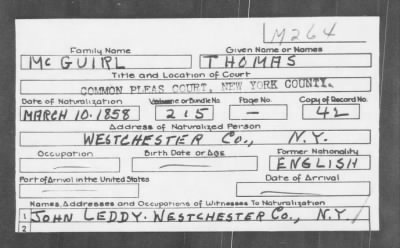 M264
Family Name Given Name or Names
McGUIRL THOMAS
Title and Location of Court
COMMON PLEAS COURT, NEW YORK COUNTY.
Date of Naturalization Volume or Bundle No. Page No. Copy of Record No.
MARCH 10. 1858 215 — 42
Address of Naturalized Person
WESTCHESTER Co., N.Y.
Occupation Birth Date or Age Former Nationality
ENGLISH
Port of Arrival in the United States Date of Arrival
Names, Addresses and Occupations of Witnesses To Naturalization
1 JOHN LEDDY. WESTCHESTER Co., N.Y.
2